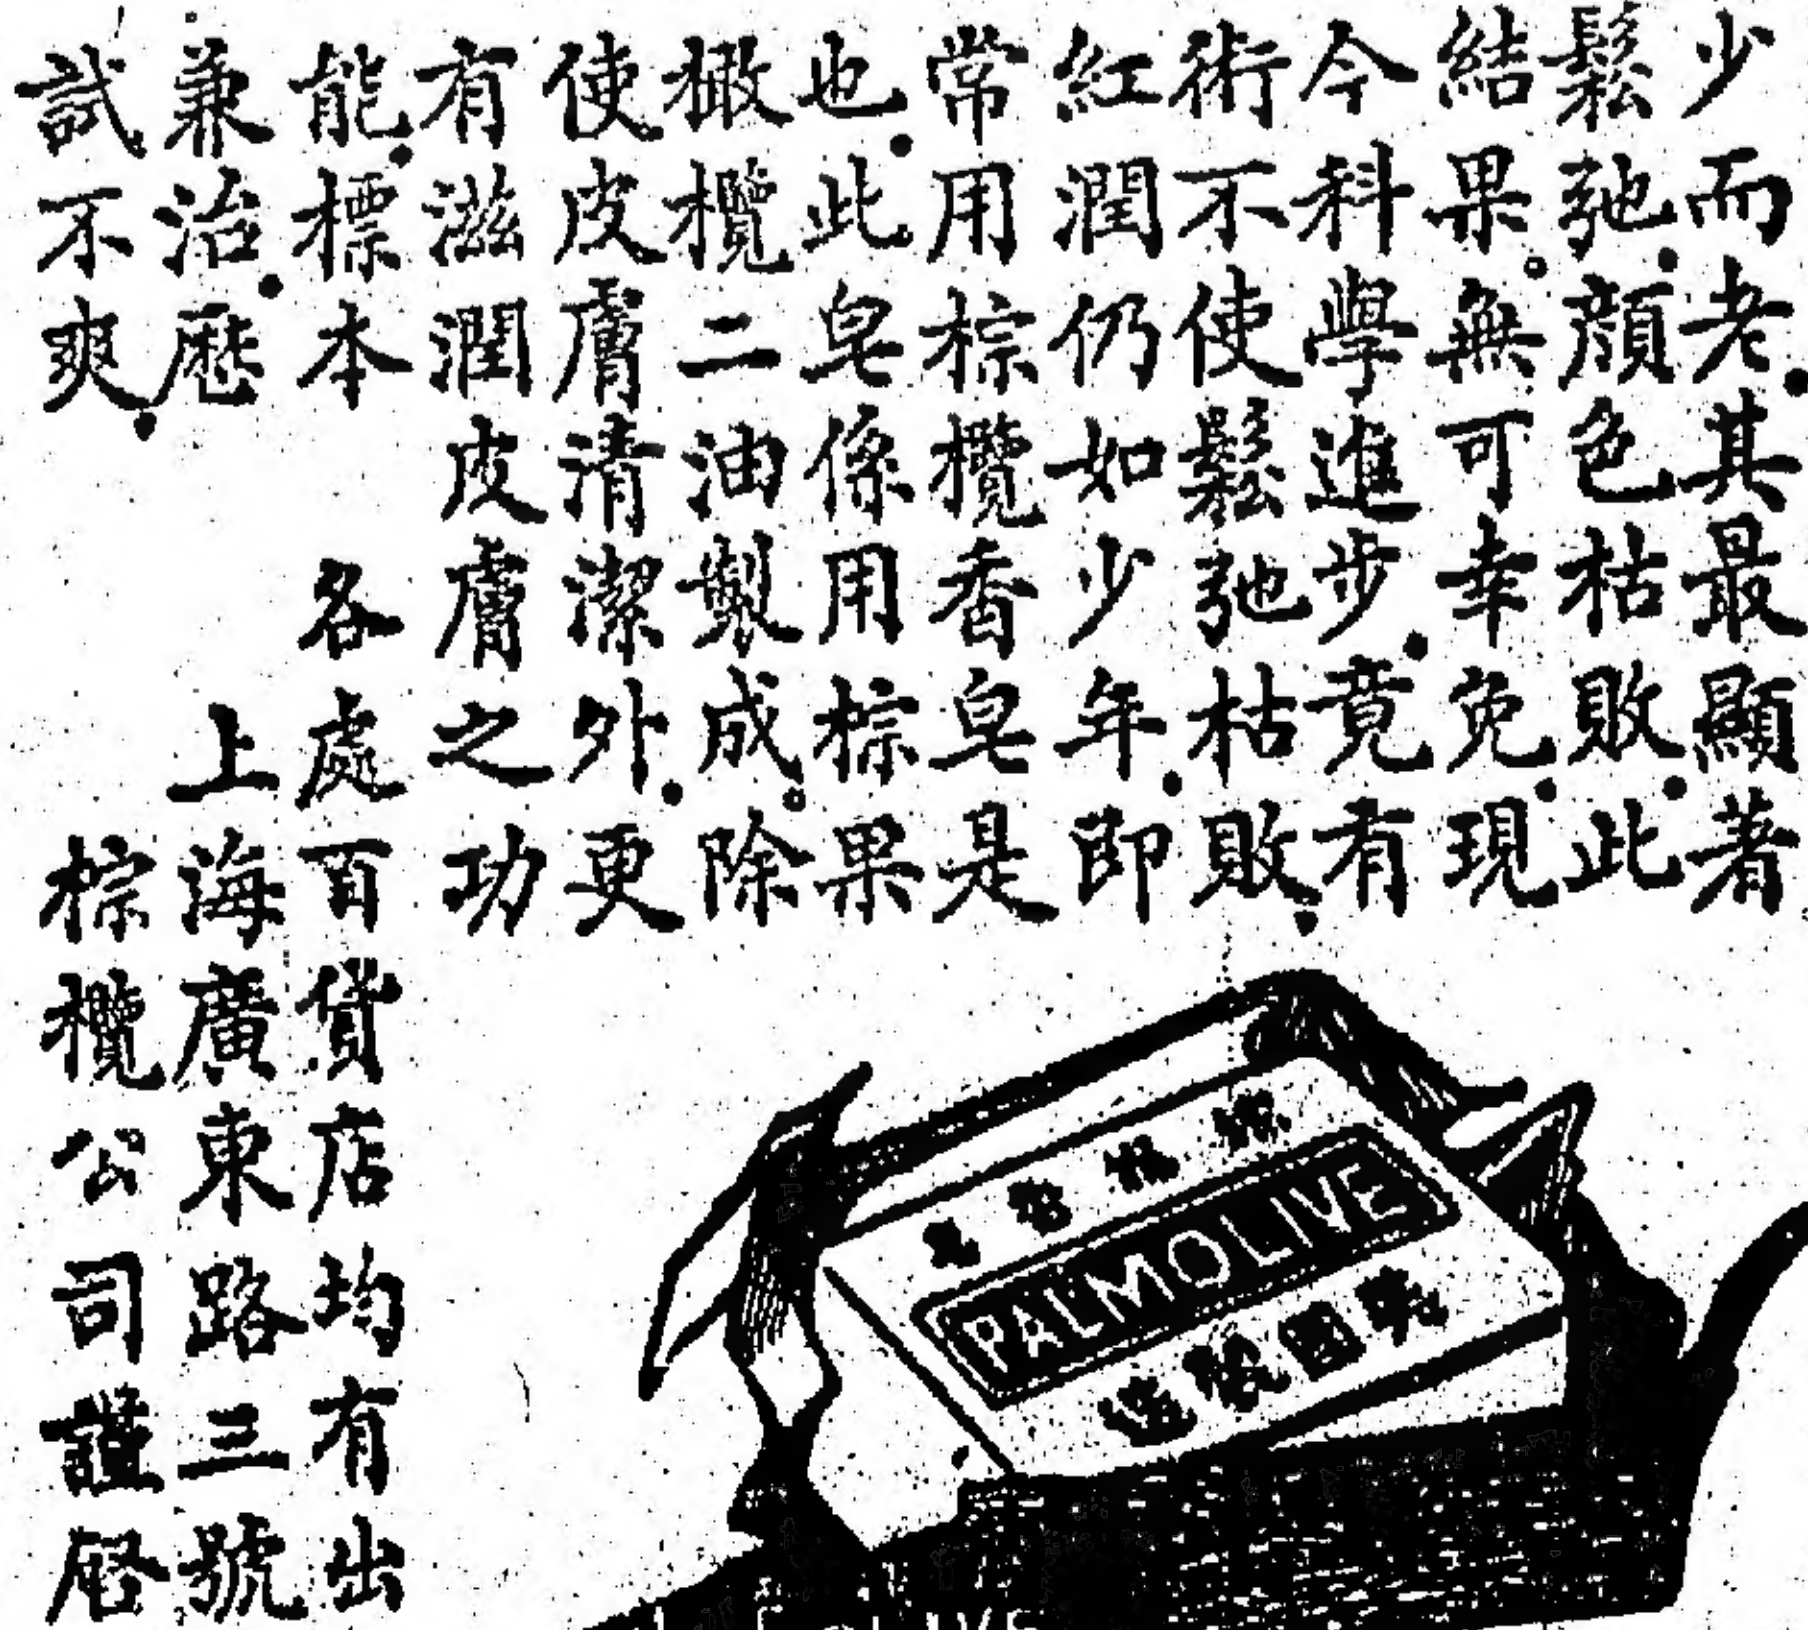 少而老.其最顯著
鬆弛.顏色枯敗.此
結果。無可幸免.現
今科學進步.竟有
術不使鬆弛枯敗.
紅潤仍如少年.即
常用棕欖香皂是
也.此皂係用棕果
橄欖二油製成。除
使皮膚清潔外.更
有滋潤皮膚之功
能.標本
兼治.歷
試不爽.
各處百貨店均有出
上海廣東路三號
棕欖公司謹啓
棕欖香皂
PALMOLIVE